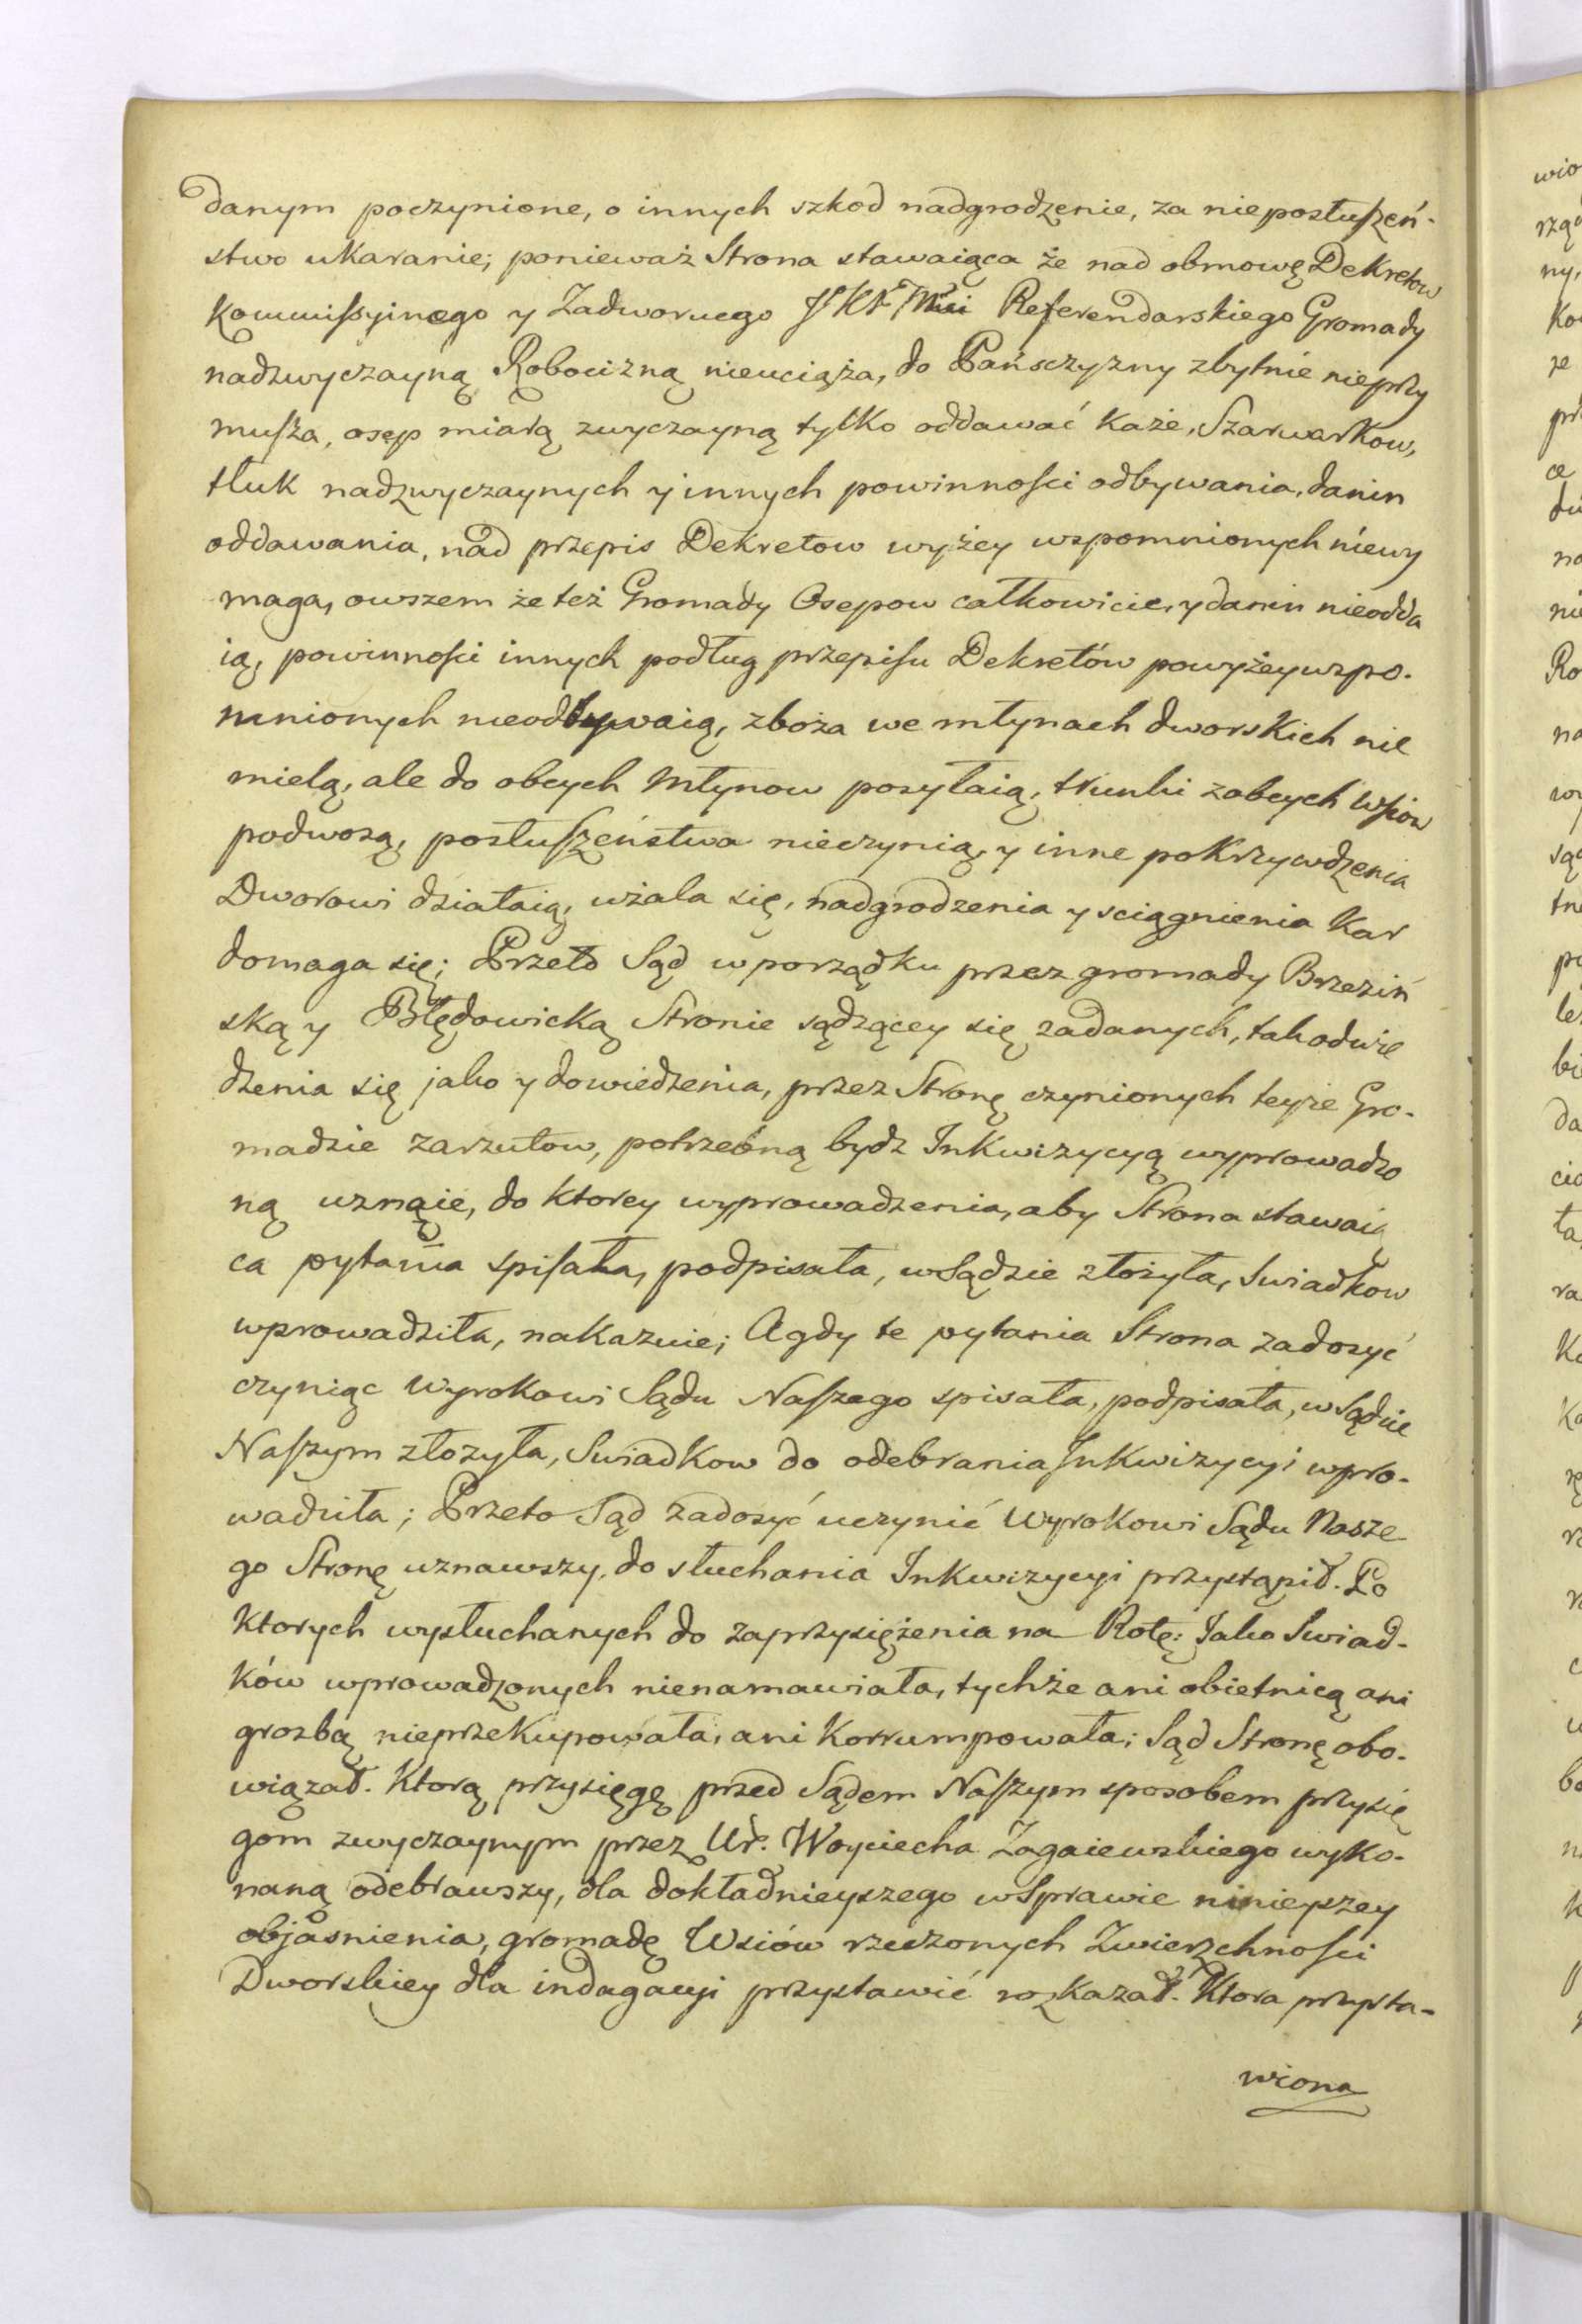 danym poczynione, o innych szkod nadgrodzenie, za nieposłuszeń-
stwo ukaranie; ponieważ Strona stawaiąca że nad obmowę Dekretow
Kommissyinego y Zadwornego JKr Mci Referendarskiego Gromady
nadzwyczayną Robocizną nieuciąża, do Pańsczyzny zbytnie nieprzy
musza, osęp miarą zwyczayną tylko oddawać każe, Szarwarkow,
tłuk nadzwyczaynych y innych powinności odbywania, danin
oddawania, nad przepis Dekretow wyżey wspomnionych niewy
maga, owszem że też Gromady Osepow całkowicie, y danin nieodda
ią, powinności innych podług przepisu Dekretów powyżey wspo-
mnionych nieodbywaią, zboża we młynach dworskich nie
mielą, ale do obcych Młynow posyłaią, trunki z obcych Wsiow
podwożą, posłuszeństwa nieczynią, y inne pokrzywdzenia
Dworowi działaią, użala się, nadgrodzenia y sciągnienia Kar
domaga się; Przeto Sąd w porządku przez gromady Brzeziń
ską y Błędowicką Stronie sądzącey się zadanych, tak odwie
dzenia się jako y dowiedzenia, przez Stronę czynionych teyże Gro-
madzie zarzutow, potrzebną bydz Inkwizycyą wyprowadzo
ną uznaie, do ktorey wyprowadzenia, aby Strona stawaią
ca pytania spisała, podpisała, w Sądzie złożyła, Swiadkow
wprowadziła, nakazuie; A gdy te pytania Strona zadosyć
czyniąc Wyrokowi Sądu Naszego spisała, podpisała, w Sądzie
Naszym złożyła, Swiadkow do odebrania Inkwizycyi wpro-
wadziła; Przeto Sąd zadosyć uczynić Wyrokowi Sądu Nasze
go Stronę uznawszy, do słuchania Inkwizycyi przystąpił. Po
ktorych wysłuchanych do zaprzysiężenia na Rotę: Jako Swiad-
ków wprowadzonych nienamawiała, tychże ani obietnicą ani
grozbą nieprzekupowała, ani Korrumpowała; Sąd Stronę obo-
wiązał. Ktorą przysięgę przed Sądem Naszym sposobem przysię
gom zwyczaynym przez Ur. Woyciecha Zagaiewskiego wyko-
naną odebrawszy, dla dokładnieyszego w Sprawie ninieyszey
objasnienia, gromadę Wsiów rzeczonych Zwierzchności
Dworskiey dla indagacyi przystawić rozkazał. Ktora przysta-
wiona